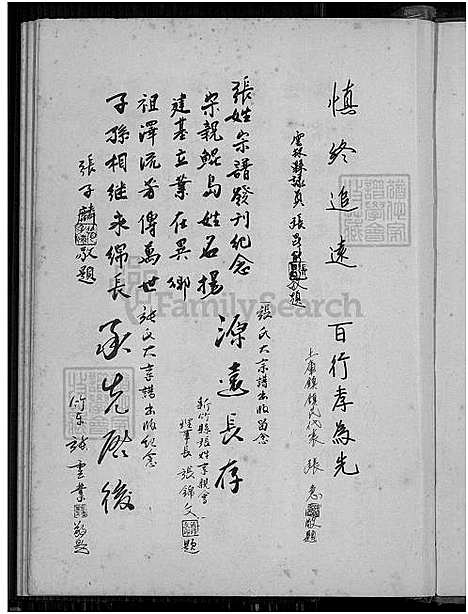 慎終追遠
雲林縣議員 張 敬題
百行孝為先
土庫鎮鎮民代表 張 敬題
張姓宗譜發刊紀念
宗親鯤島姓名揚
建基立業在異鄉
祖澤流芳傳萬世
子孫相繼永綿長
張子麟 敬題
張氏大宗譜出版留念
源遠長存
新竹縣張姓宗親會
理事長 張錦文 題
張氏大宗譜出版紀念
承先啟後
竹東 張雲業 敬題
FamilySearch